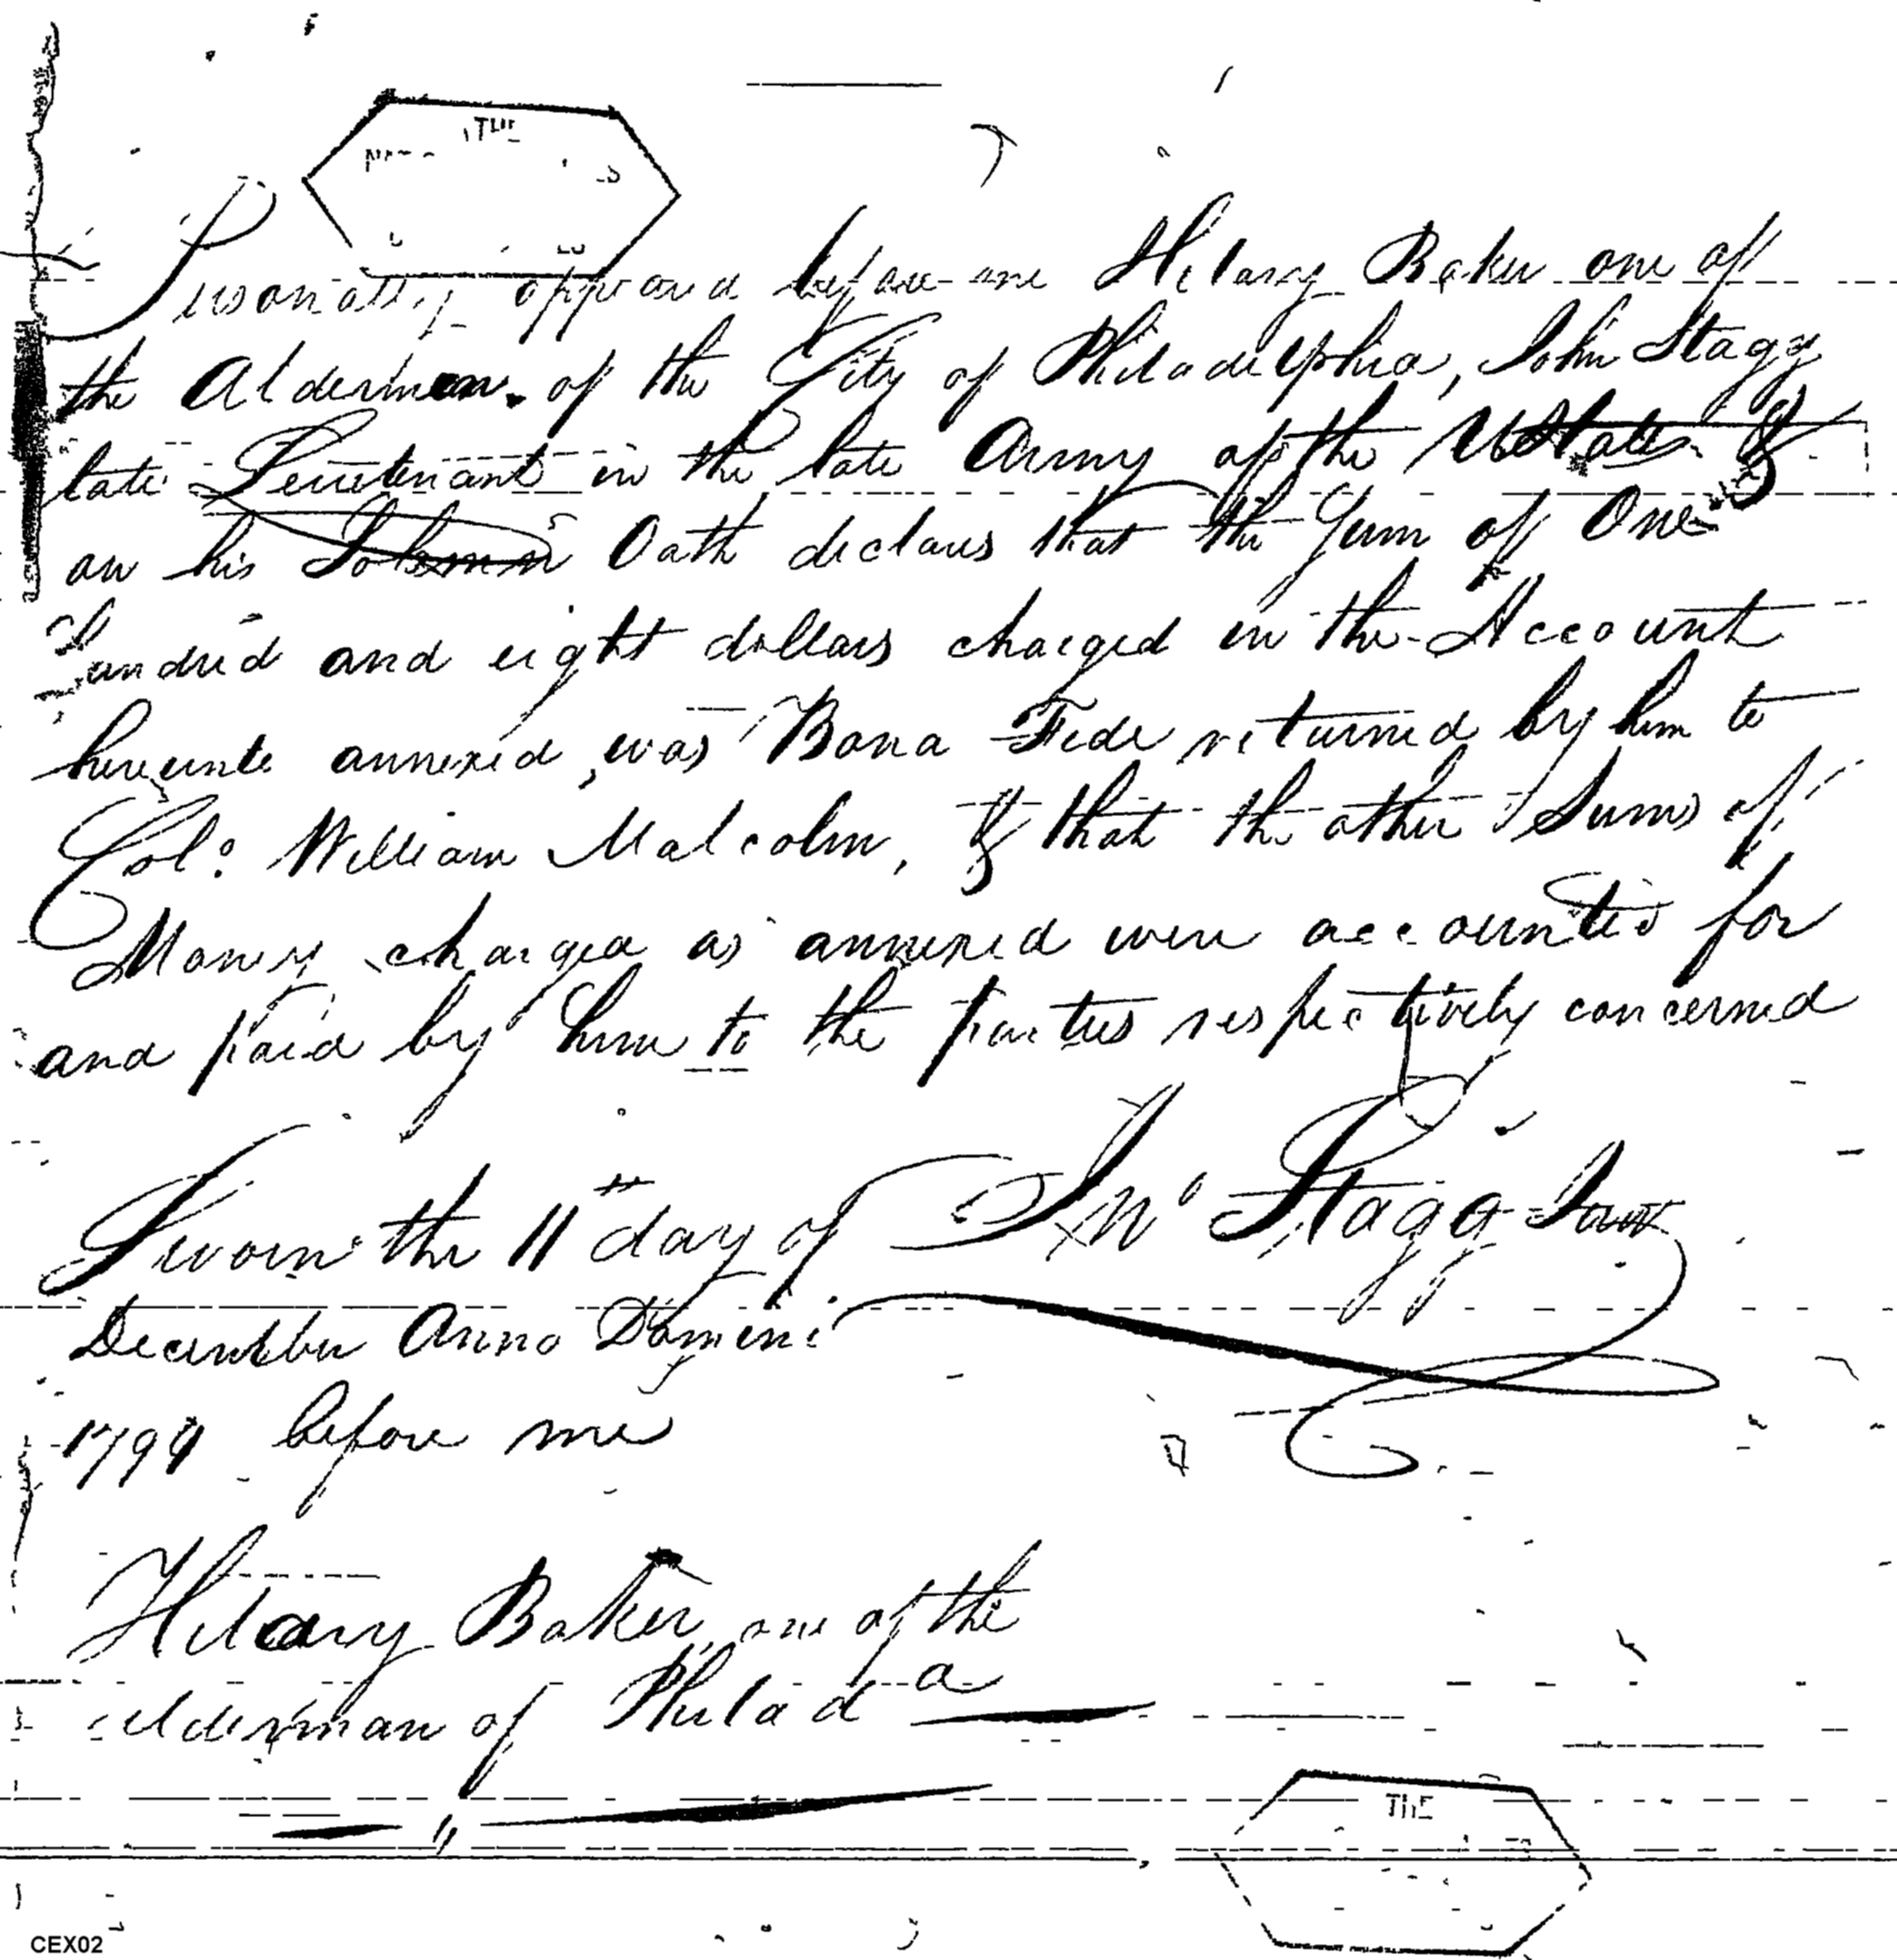 THE
Personally appeared before me Hilary Baker one of
the Aldermen of the City of Philadelphia, John Stagg
late Lieutenant in the late Army of the UStates &
on his Solemn Oath declares that the Sum of One
Hundred and eight dollars charged in the Account
hereunto annexed, was Bona Fide returned by him to
Col: William Malcolm, & that the other Sums of
Money charged as annexed were accounted for
and paid by him to the parties respectively concerned
Sworn the 11th day of Jno Stagg Junr
December Anno Domini
1794 before me
Hilary Baker, one of the
Alderman of Philada
THE
CEX02